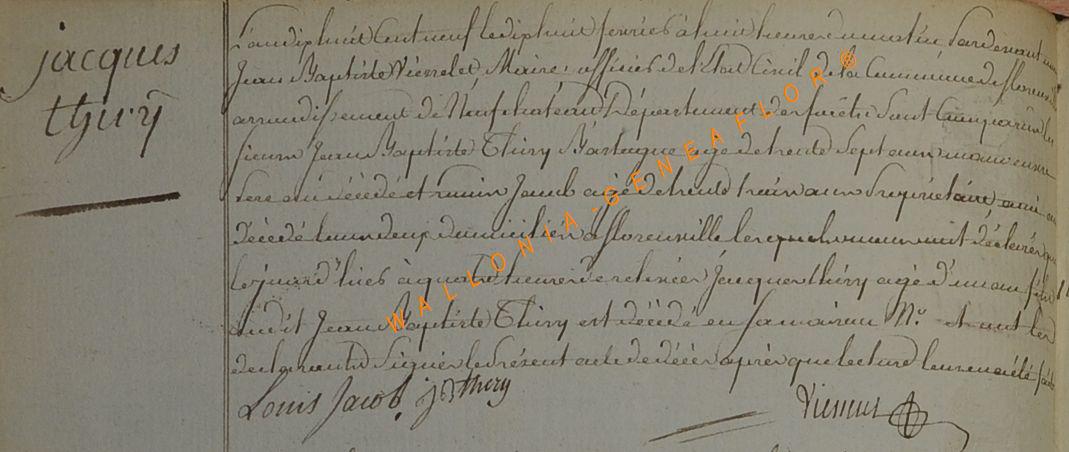 jacques
thiry
L'an dix huit Cent neuf le dix huit fevrier à huit heures du matin Pardevant nous
Jean Baptiste Maire officier de l'Etat Civil de la Commune de florenville
arrondissement de Neufchâteau Département des forêts Sont Comparûs les
sieurs Jean Baptiste Thiry agé de trente Sept ans
Pere du décédé et Jacob agé de trente ans Propriétaire ami du
décédé tous deux domiciliés à florenville lesquels nous ont déclarés que
le jour d'hier à quatre heures de relevée Jacques thiry agé d'un an fils
dudit Jean Baptiste Thiry est décédé en sa maison N.º et ont les
declarants Signés le Présent acte de décès après que lecture leur en a été faite
Louis Jacob jB thiry
WALLONIA-GENEAFLOR®